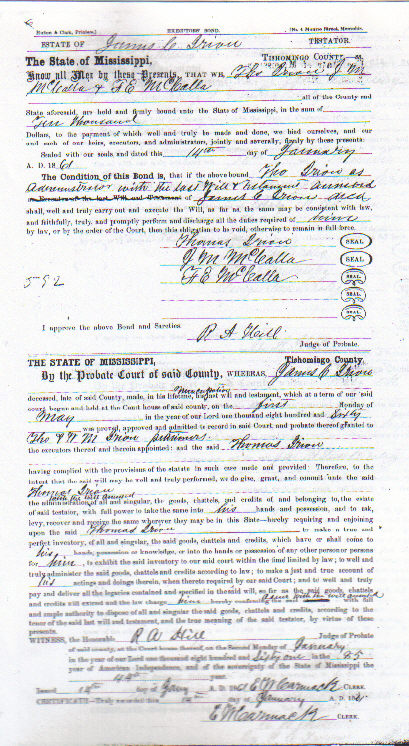 Hutton & Clark, Printers. EXECUTORS' BOND. No. 4 Monroe Street, Memphis.
ESTATE OF James C Drion TESTATOR.
The State of Mississippi, TISHOMINGO COUNTY,
Know all Men by these Presents, THAT WE, Tho Drion J M
McCalla & F E McCalla
all of the County and
State aforesaid, are held and firmly bound unto the State of Mississippi, in the sum of
Ten thousand
Dollars, to the payment of which well and truly be made and done, we bind ourselves, and our
and each of our heirs, executors, and administrators, jointly and severally, firmly by these presents:
Sealed with our seals and dated this 14th day of January
A. D. 186
The Condition of this Bond is, that if the above bound Tho Drion as
administrator with the last Will & testament annexed
as Executor of the last Will and Testament of James C Drion decd
shall, well and truly carry out and execute the Will, so far as the same may be consistent with law,
and faithfully, truly, and promptly perform and discharge all the duties required of him
by law, or by the order of the Court, then this obligation to be void, otherwise to remain in full force.
Thomas Drion SEAL
J M McCalla SEAL
592 F. E. McCalla SEAL.
SEAL.
SEAL.
I approve the above Bond and Sureties.
R A Hill
Judge of Probate.
THE STATE OF MISSISSIPPI, Tishomingo County.
By the Probate Court of said County, WHEREAS, James C Drion
deceased, late of said County, made, in his lifetime, his last will and testament, which at a term of our said
court begun and held at the Court house of said county, on the first Monday of
May in the year of our Lord one thousand eight hundred and Sixty
was proved, approved and admitted to record in said Court, and probate thereof granted to
Tho & W M Drion
the executors thereof and therein appointed; and the said Thomas Drion
having complied with the provisions of the statute in such case made and provided: Therefore, to the
intent that the said will may be well and truly performed, we do give, grant, and commit unto the said
Thomas Drion
with the will annexed
the administration, of all and singular, the goods, chattels, and credits of and belonging to, the estate
of said testator, with full power to take the same into his hands and possession, and to ask,
levy, recover and receive the same wherever they may be in this State—hereby requiring and enjoining
upon the said Thomas Drion to make a true and
perfect inventory, of all and singular, the said goods, chattels, and credits, which have or shall come to
his hands, possession or knowledge, or into the hands or possession of any other person or persons
for him, to exhibit the said inventory to our said court within the time limited by law; to well and
truly administer the said goods, chattels and credits according to law; to make a just and true account of
his actings and doings therein, when thereto required by our said Court; and to well and truly
pay and deliver all the legacies contained and specified in the said will, so far as the said goods, chattels,
and credits will extend and the law charge him hereby full
and ample authority to dispose of all and singular the said goods, chattels and credits, according to the
tenor of the said last will and testament, and the true meaning of the said testator, by virtue of these
presents.
WITNESS, the Honorable R. A. Hill Judge of Probate
of said county, at the Court house thereof, on the Second Monday of January
in the year of our Lord one thousand eight hundred and Sixty in the 85
year of American Independence, and of the sovereignty of the State of Mississippi the
44th year.
Issued 14th day of Jany A. D. 186 E McCarmack CLERK.
CERTIFICATE—Truly recorded this 14th day of January A. D. 186
E McCarmack CLERK.